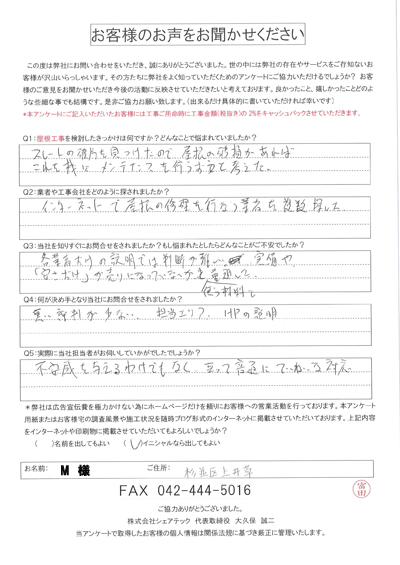 お客様のお声をお聞かせください
この度は弊社にお問い合わせをいただき、誠にありがとうございました。世の中には弊社の存在やサービスをご存知ないお
客様が沢山いらっしゃいます。その方たちに弊社をよく知っていただくためのアンケートにご協力いただけるでしょうか? お客
様のご意見をお聞かせいただき今後の活動に反映させていただきたいと考えております。良かったこと、嬉しかったことどのよ
うな些細な事でも結構です。是非ご協力お願い致します。(出来るだけ具体的に書いていただければ幸いです)
*本アンケートにご記入いただいたお客様には工事ご用命時に工事金額(税抜き)の2%をキャッシュバックさせていただきます。
Q1:屋根工事を検討したきっかけは何ですか?どんなことで悩まれていましたか?
スレートの破片を見つけたので屋根の破損があれば
これを機にメンテナンスを行う必要を考えた。
Q2:業者や工事会社をどのように探されましたか?
インターネットで屋根の修理を行なう業者を複数探した
Q3:当社を知りすぐにお問合せをされましたか?もし悩まれたとしたらどんなことがご不安でしたか?
各業者だけの説明では判断が難しい 実績や
「安さだけ」が売りになっていないかを重視した。
使う材料と
Q4:何が決め手となり当社にお問合せをされましたか?
悪い評判が少ない、担当エリア、HPの説明
Q5:実際に当社担当者がお伺いしていかがでしたでしょうか?
不安感を与えるわけでもなく 至って普通にていねいな対応
*弊社は広告宣伝費を極力かけない為にホームページだけを頼りにお客様への営業活動を行っております。本アンケート
用紙またはお客様宅の調査風景や施工状況を随時ブログ形式のインターネットに掲載させていただいております。上記内容
をインターネットや印刷物に掲載させていただいてもよろしいでしょうか?
( )名前を出してもよい (✓)イニシャルなら出してもよい
お名前: M 様 ご住所: 杉並区上井草
FAX 042-444-5016
富田
ご協力ありがとうございました。
株式会社シェアテック 代表取締役 大久保 誠二
当アンケートで取得したお客様の個人情報は関係法規に基づき厳正に管理いたします。